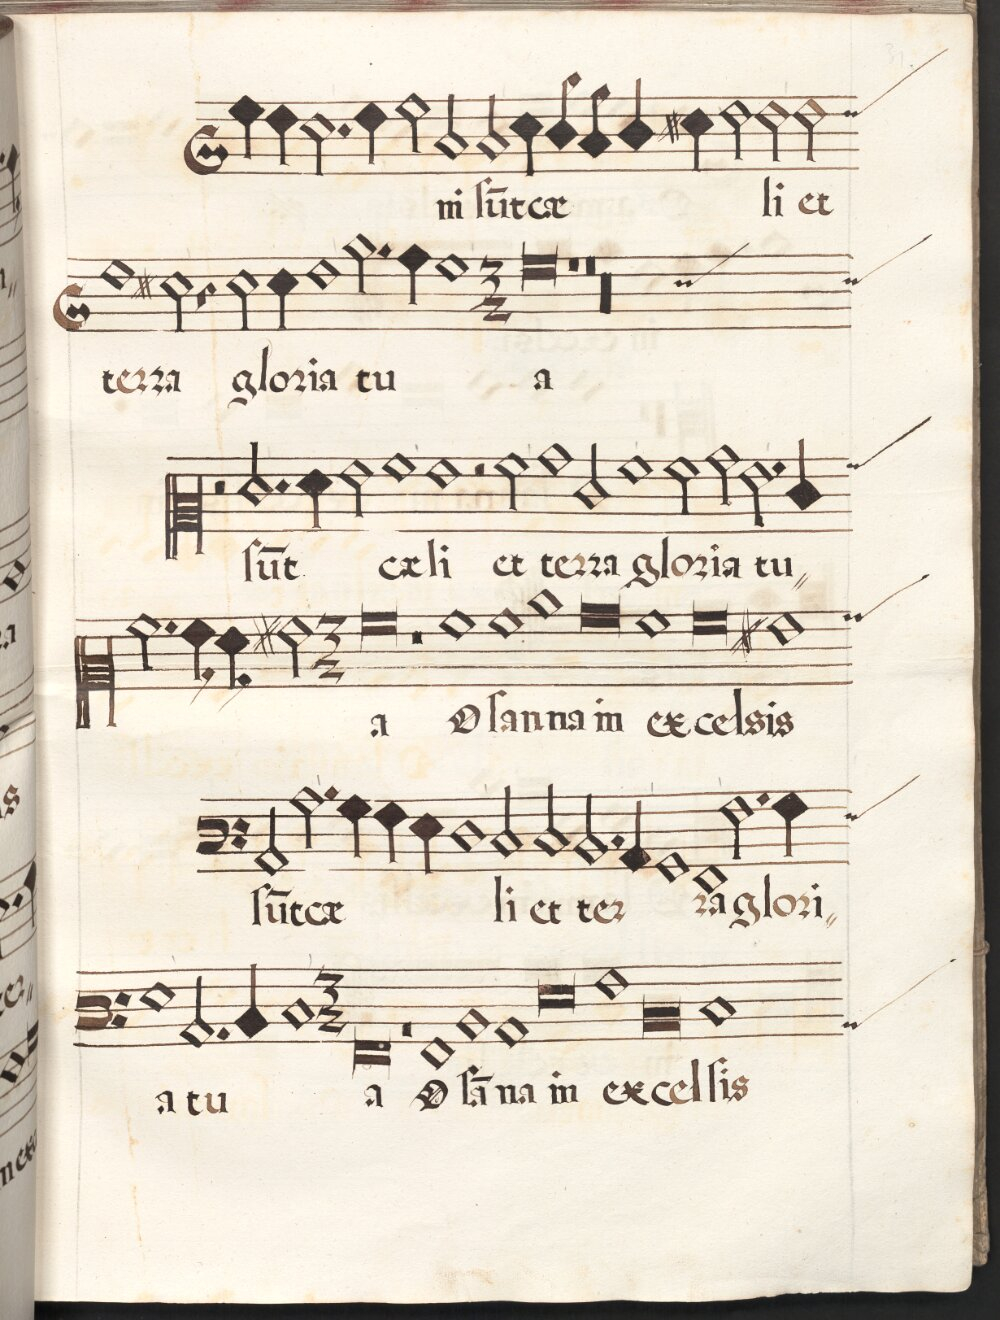 31.
ni sūt cæ li et
terra gloria tu a
3
2
sūt cæli et terra gloria tu,,
a O sanna in excelsis
3
2
sūt cæ li et ter ra glori,,
a tu a O sāna in excelsis
3
2